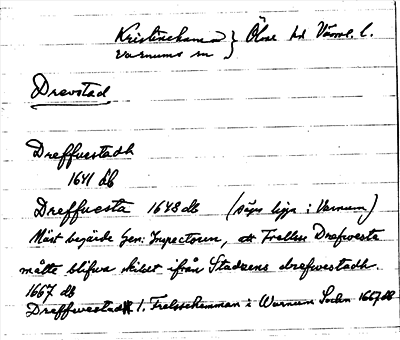 Kristinehamn } Ölme hd Värml. l.
Varnums sn
Drevstad
Dreffwestadh
1641 db
Dreffwesta 1648 db (säges ligga i Varnum)
Mäst begärde Gen: Inspectoren, att Frelsse Drafwesta
måtte blifwa skildt ifrån Stadzens drefwestadh.
1667 db
Dreffwestadh 1. Frelsehemman i Warnum Sochn 1667 db